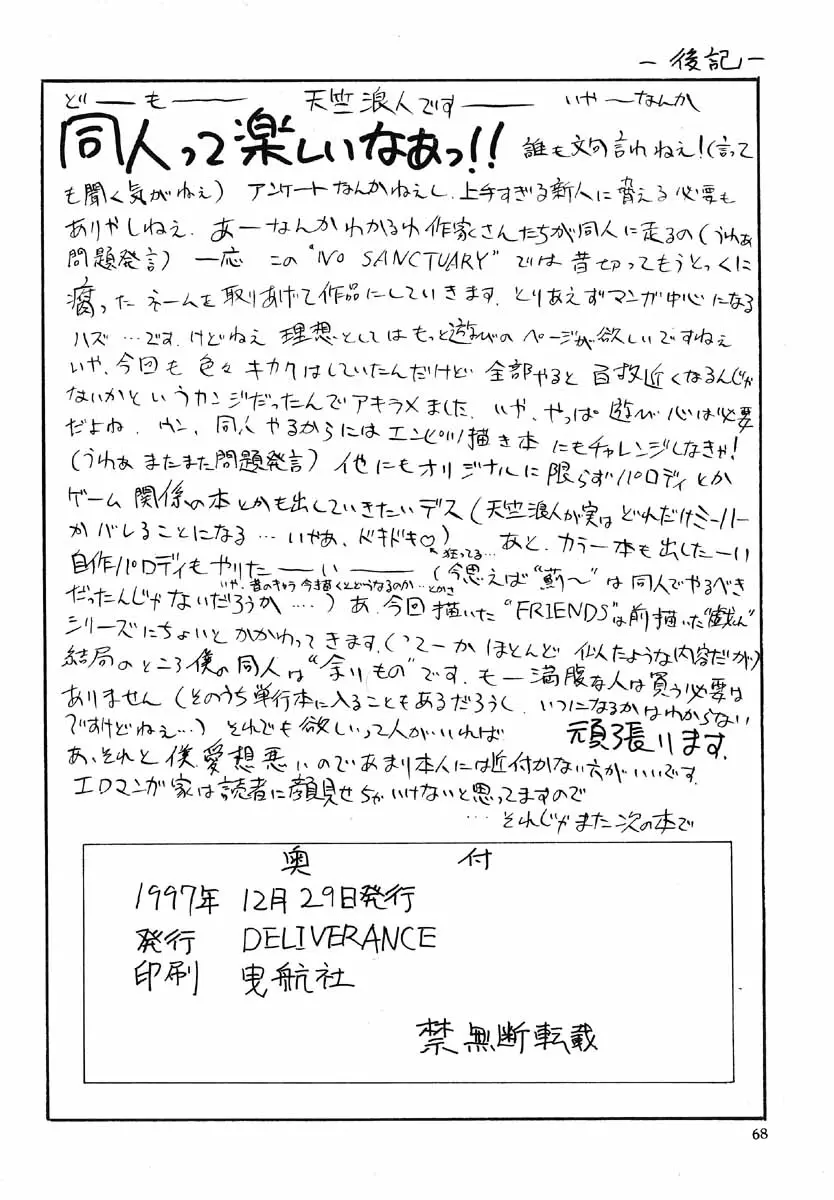 －後記－
ど──も── 天竺浪人です── いや～なんか
同人って楽しいなあっ!! 誰も文句言われねぇ!(言って
も聞く気がねぇ) アンケートなんかねぇし、上手すぎる新人に脅える必要も
ありやしねぇ. あーなんかわかるわ 作家さんたちが同人に走るの(うわぁ
問題発言) 一応 この "NO SANCTUARY" では昔切ってもうとっくに
腐ったネームを取りあげて作品にしていきます. とりあえずマンガ中心になる
ハズ …です. けどねぇ 理想としてはもっと遊びのページが欲しいですねぇ
いや、今回も色々キカクはしていたんだけど 全部やると百枚近くなるんじゃ
ないかというカンジだったんでアキラメました. いや、やっぱ遊び心は必要
だよね. ウン、同人やるからにはエンピツ描き本にもチャレンジしなきゃ!
(うわぁ またまた問題発言) 他にもオリジナルに限らずパロディとか
ゲーム関係の本とかも出していきたいデス (天竺浪人が実はどれだけミーハー
かバレることになる … いやぁ、ドキドキ♡) あと、カラー本も出したーい
狂ってる…
自作パロディもやりたーいー (今思えば "薊～" は同人でやるべき
いや、昔のキャラ今描くとどうなるのか…とかさ
だったんじゃないだろうか …) あ、今回描いた "FRIENDS" は前描いた "戯れ"
シリーズにちょいとかかわってきます. (つてーか ほとんど 似たような内容だが)
結局のところ僕の同人は "余りもの" です. もー満腹な人は買う必要は
ありません (そのうち単行本に入ることもあるだろうし、いつになるかはわからない
ですけどねぇ…) それでも欲しいって人がいれば 頑張ります.
あ、それと僕、愛想悪いのであまり本人には近付かない方がいいです.
エロマンガ家は読者に顔見せちゃいけないと思ってますので
… それじゃまた次の本で
奥 付
1997年 12月29日発行
発行 DELIVERANCE
印刷 曳航社
禁 無断転載
68